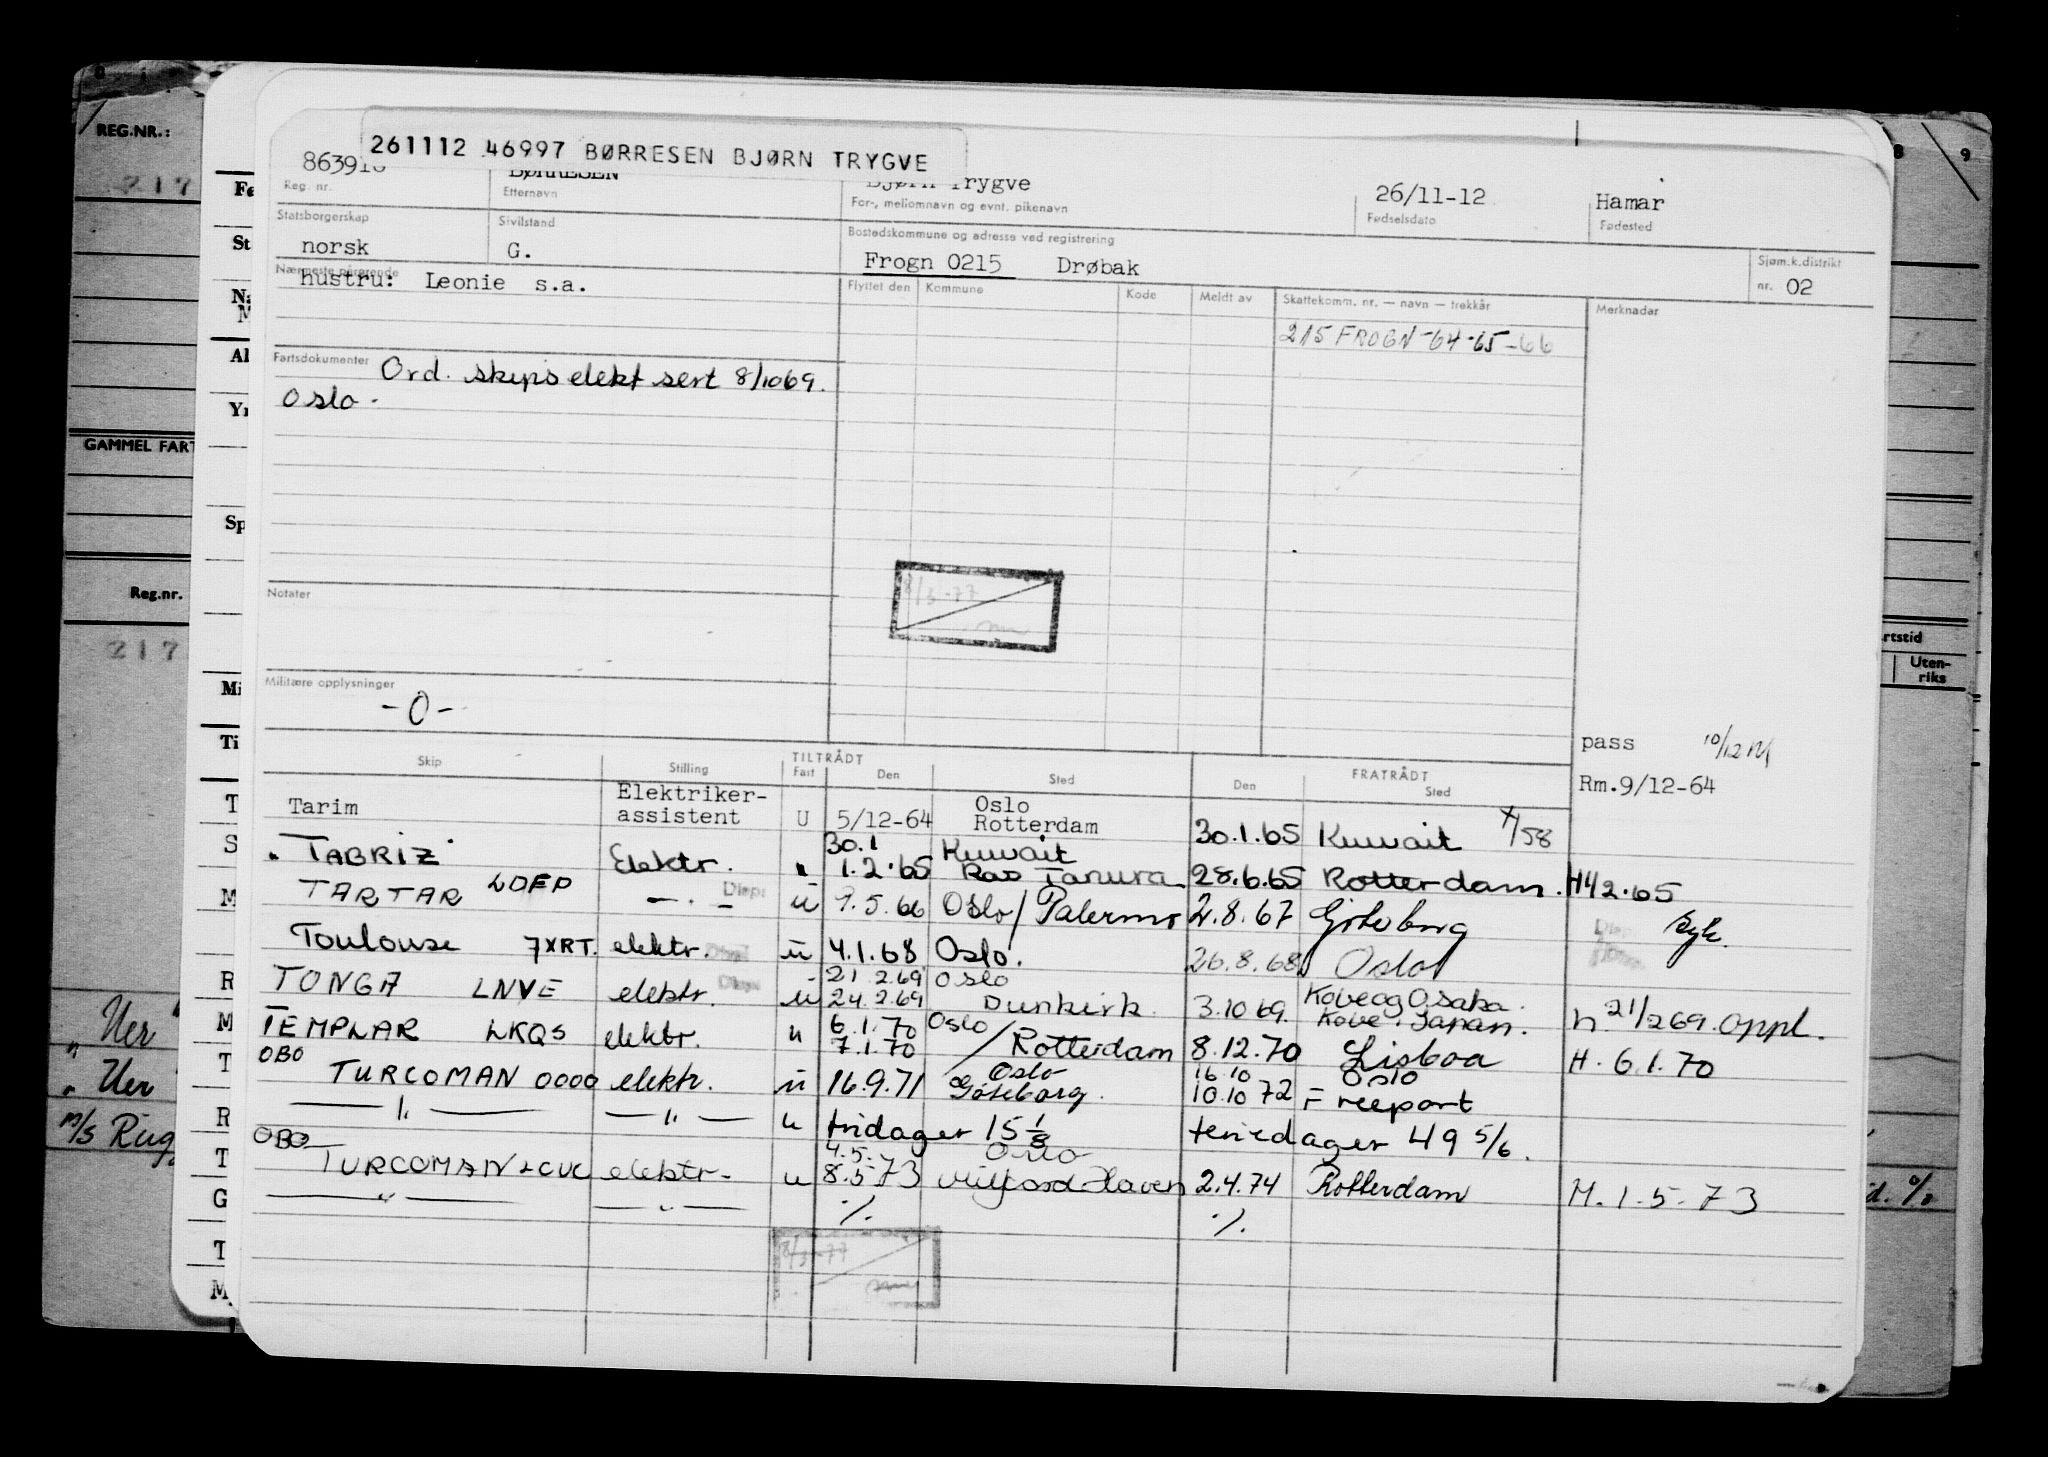 REG.NR.:
217
GAMMEL FART
Reg.nr.
217
261112 46997 BØRRESEN BJØRN TRYGVE
BØRRESEN Bjørn Trygve 26/11-12 Hamar
Reg. nr. Etternavn For-, mellomnavn og evnt. pikenavn Fødselsdato Fødested
Statsborgerskap Sivilstand Bostedskommune og adresse ved registrering
norsk G. Frogn 0215 Drøbak Sjøm.k.distrikt nr. 02
Nærmeste pårørende
hustru: Leonie s.a.
Flyttet den Kommune Kode Meldt av Skattekomm. nr. — navn — trekkår Merknader
215 FROGN -64-65-66
Fartsdokumenter
Ord. skips elekt sert 8/10 69.
Oslo.
8/3-77
Notater
Militære opplysninger
-0-
pass 10/12
Rm.9/12-64
TILTRÅDT FRATRÅDT
Skip Stilling Fart Den Sted Den Sted
Tarim Elektriker-assistent U 5/12-64 Oslo Rotterdam 30.1.65 Kuwait
TABRIZ Elektr. " 30.1 1.2.65 Kuwait Ras Tanura 28.6.65 Rotterdam. H42.65
TARTAR LDEP — . — Disp. ü 7.5.66 Oslo/Palermo 2.8.67 Göteborg syk.
Toulouse 7XRT. elektr. ü 4.1.68 Oslo. 26.8.68 Oslo
TONGA LNVE elektr. Disp. ü 21 2.69 24.2.69 Oslo Dunkirk. 3.10 69. Kobe og Osaka. Kobe. Japan. h 21/2 69. oppl.
TEMPLAR LKQS elektr. u 6.1.70 7.1.70 Oslo / Rotterdam 8.12.70 Lisboa H. 6.1.70
OBO TURCOMAN elektr. ü 16.9.71 Oslo Göteborg. 16.10 10.10 72 Oslo Freeport
— " — — " — u fridager 15 1/8 feriedager 49 5/6.
OBO TURCOMAN LCVC elektr. u 4.5. 8.5 73 Oslo Milford Haven 2.4.74 Rotterdam M. 1.5.73
— " — — " — ./. ./.
8/3-77
Uer
Uer
M/S Ring
rtstid
Uten-
riks